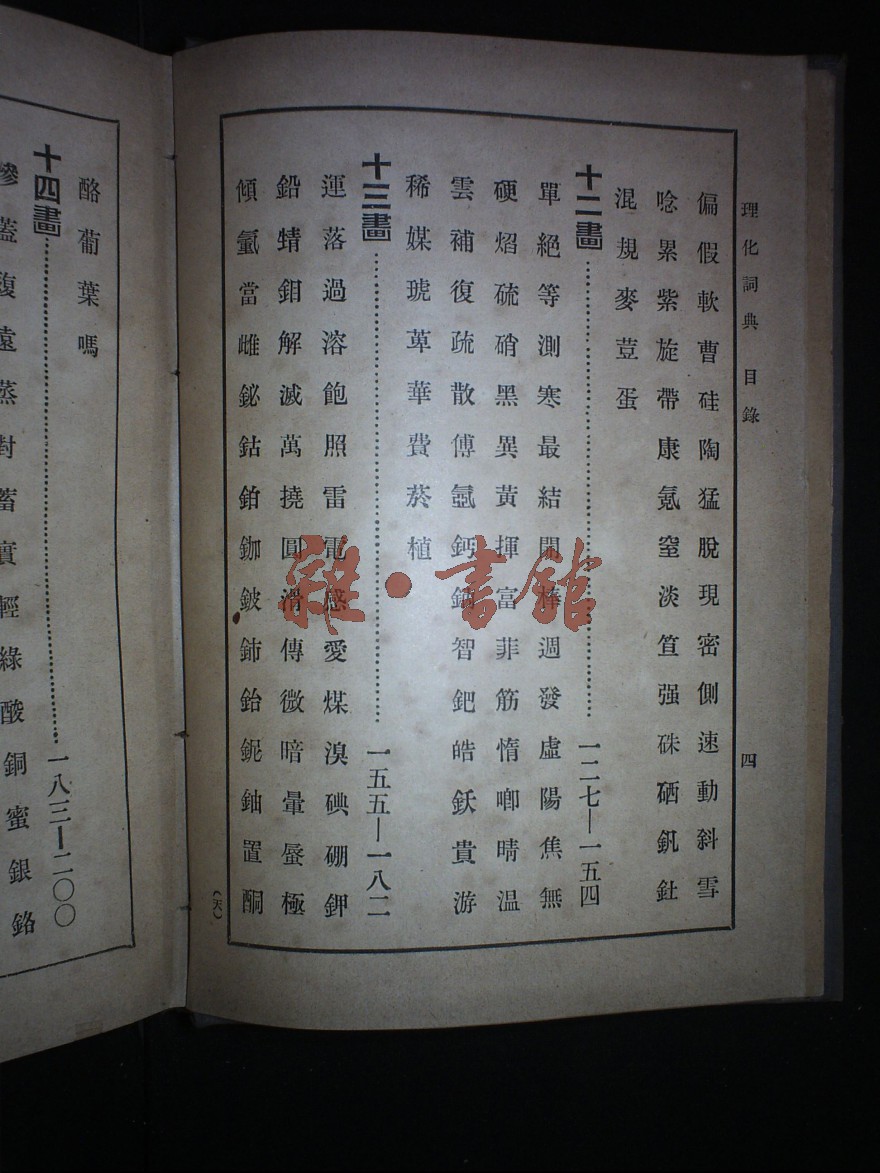 理化詞典 目錄 四
偏假軟曹硅陶猛脫現密側速動斜雪
唸累紫旋帶康氪窒淡笪强硃硒釩釷
混規麥荳蛋
十二畫⋯⋯一二七—一五四
單絕等測寒最結開棒週發虛陽焦無
硬焰硫硝黑異黃揮富菲筋惰啣晴温
雲補復疏散傅氬鈣智鈀皓鈥貴游
稀媒琥萆華費菸植
十三畫⋯⋯一五五—一八二
運落過溶飽照雷電感愛煤溴碘硼鉀
鉛蜻鉬解滅萬撓圓滑傳微暗暈蜃極
傾當雌鉍鈷鉑鉫鈹鈰鈶鈮鈾置酮
酪葡葉嗎
十四畫⋯⋯一八三—二〇〇
蓋複遠蒸對蓄實輕綠酸銅蜜銀鉻
雜·書館